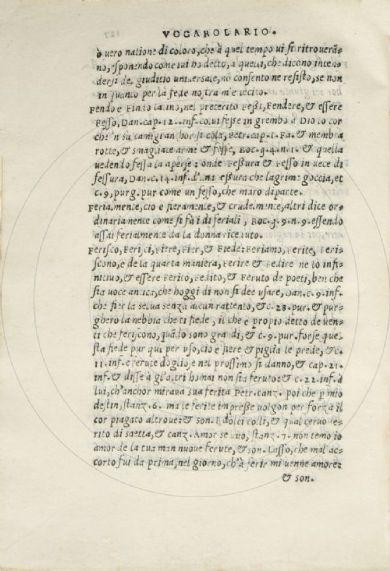 VOCABOLARIO.
ò uero natione di coloro, che à quel tempo ui si ritrouerã-
no, rispondendo come lui ha detto, à questi, che dicono inten
dersi del giuditio uniuersale, nõ consento ne resisto, se non
in quanto per la fede nostra m'è lecito.
Fendo e Findo latino, nel preterito Fessi, Fendere, & essere
Fesso, Dan. cap. 12. inf. co. ui fesse in grembo à Dio lo cor
che 'n su Tamigi anchor si cola, Petr. cap. 1. Fa. & membra
rotte, & smagliate arme & fesse, Boc. g. 4. n. 1. & quella
uedendo fessa la aperse: onde Fessura & Fesso in uece di
fessura, Dan. c. 14. inf. d'una fessura che lagrime goccia, et
c. 9. purg. pur come un fesso, che muro diparte.
Ferialmente, cio è fieramente, & crudelmente, altri dice or
dinariamente come si fà i dì feriali, Boc. g. 9. n. 9. essendo
assai ferialmente da la donna riceuuto.
Ferisco, Ferisci, Fere, Fier, & Fiede: Feriamo, Ferite, Feri-
scono, e de la quarta maniera, Ferire & Fedire ne lo infi-
nitiuo, & essere Ferito, Fedito, & Feruto de poeti, ben che
sia uoce antica, che hoggi di non si dee usare, Dan. c. 9. inf.
che fier la selua senza alcun rattento, & c. 28. pur. & pur-
ghero la nebbia che ti fiede, il che è proprio detto de uen-
ti che feriscono, quãdo sono gradi, & c. 9. pur. forse que
sta fiede pur qui per uso, cio è fiere & piglia le prede, & c.
11. inf. e ferute dogliose nel prossimo si danno, & cap. 21.
inf. & disse à gl'altri homai non sia feruto: & c. 22. inf. à
lui, ch'anchor miraua sua ferita Petr. canz. poi che p mio
destin, stanz. 6. ma le ferite impresse uolgon per forza il
cor piagato altroue: & son. I dolci colli, et qual ceruo fe-
rito di saetta, et canz. Amor se uuo, stanz. 7. non temo io
amor de la tua man nuoue ferute, & son. Lasso, che mal ac-
corto fui da prima, nel giorno, ch'à ferir mi uenne amore:
& son.